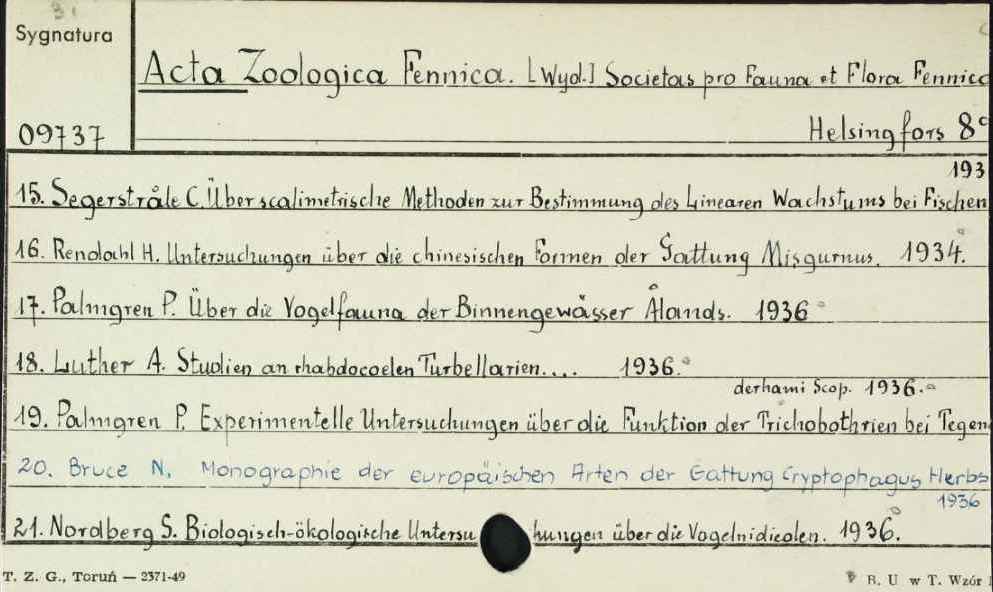 31
Sygnatura
Acta Zoologica Fennica. [Wyd.] Societas pro Fauna et Flora Fennica
09737
Helsingfors 8°
193
15. Segerstråle C. Über scalimetrische Methoden zur Bestimmung des Linearen Wachstums bei Fischen
16. Rendahl H. Untersuchungen über die chinesischen Formen der Gattung Misgurnus. 1934.
17. Palmgren P. Über die Vogelfauna der Binnengewässer Ålands. 1936
18. Luther A. Studien an rhabdocoelen Turbellarien.... 1936.
derhami Scop. 1936.
19. Palmgren P. Experimentelle Untersuchungen über die Funktion der Trichobothrien bei Tegen
20. Bruce N. Monographie der europäischen Arten der Gattung Cryptophagus Herbs
1936
21. Nordberg S. Biologisch-ökologische Untersu hungen über die Vogelnidicolen. 1936.
T. Z. G., Toruń — 2371-49
B. U w T. Wzór 1